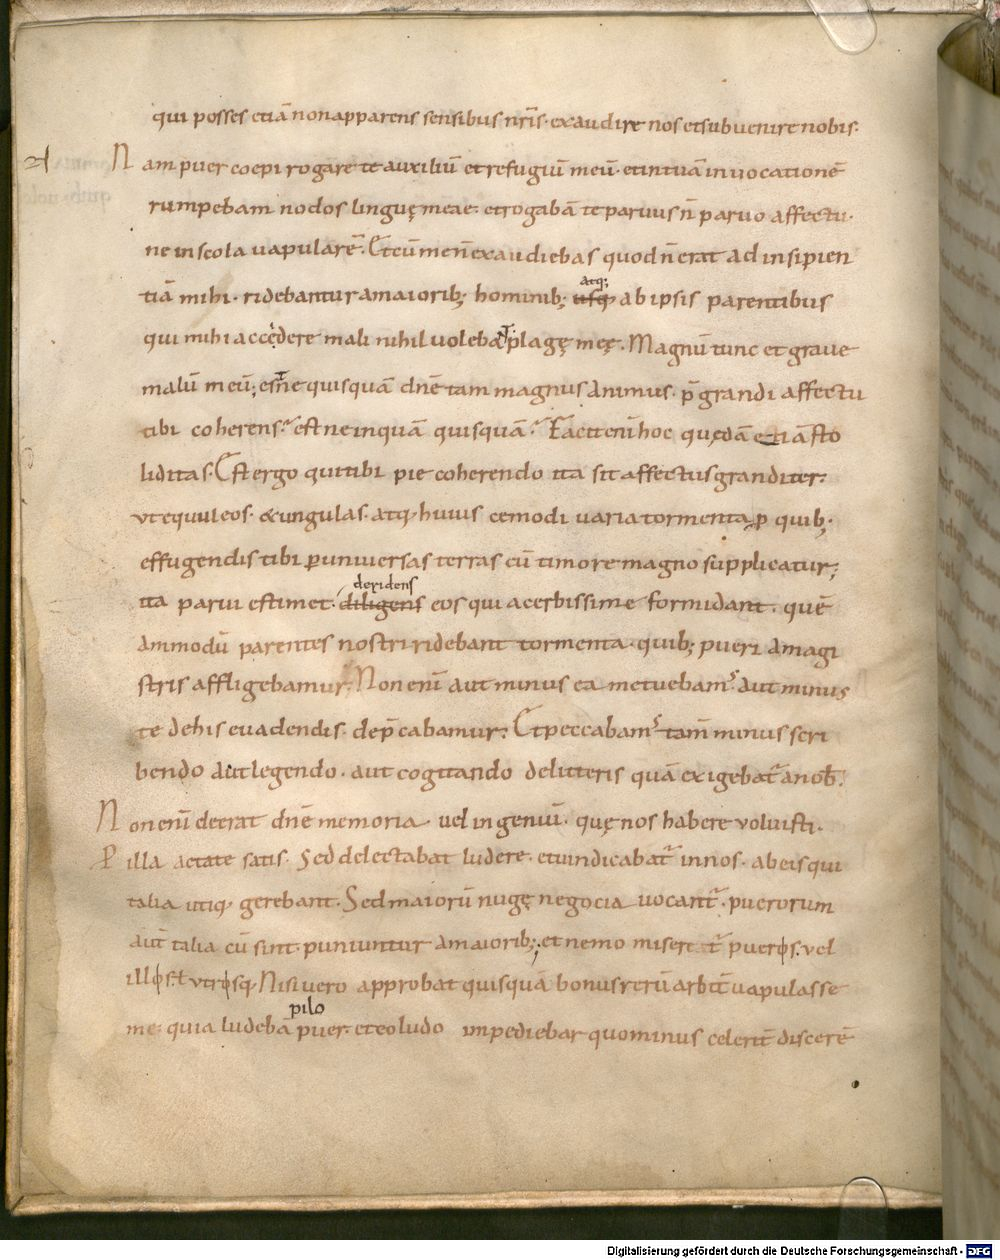 qui posses etiā non apparens sensibus nr̄is· exaudire nos et subvenire nobis·
Nam puer coepi rogare te auxiliū et refugiū meū· et in tuā invocationē
rumpebam nodos linguę meae· et rogabā te parvus n̄ parvo affectu·
ne in scola vapularē· Et cū me n̄ exaudiebas quod n̄ erat ad insipien
tiā mihi· ridebantur a maiorib; hominib; usq; atq; ab ipsis parentibus
qui mihi accedere mali nihil volebāt plagę meę· Magnū tunc et grave
malū meū; estne quisquā dn̄e tam magnus animus· p̄grandi affectu
tibi coherens· est ne inquā quisquā· Facit enī hoc quędā etiā sto
liditas· Est ergo qui tibi pie coherendo ita sit affectus granditer·
ut equuleos· & ungulas· atq; huius cemodi varia tormenta, p quib;·
effugendis tibi ꝑ universas terras cū timore magno supplicatur;
ita parvi estimet· diligens deridens eos qui acerbissime formidant· quē
ammodū parentes nostri ridebant tormenta· quib; pueri a magi
stris affligebamur· Non enī aut minus ea metuebam᷒ aut minus
te de his evadendis· dep̄cabamur· Et peccabam᷒ tam̄ minus scri
bendo aut legendo· aut cogitando de litteris quā exigebat᷒ a nob̄·
Non enī deerat dn̄e memoria· vel ingeniū· quę nos habere voluisti·
P illa aetate satis· Sed delectabat ludere· et vindicabat᷒ in nos· ab eis qui
talia utiq; gerebant· Sed maiorū nugę negocia vocant᷒· puerorum
aut̄ talia cū sint· puniuntur a maiorib; et nemo miseret᷒ pueros· vel
illos· ł utrosq; Nisi vero approbat quisquā bonus rerū arbit̄ vapulasse
me· quia ludebā pilo puer· et eo ludo impediebar quominus celerit̄ discerē